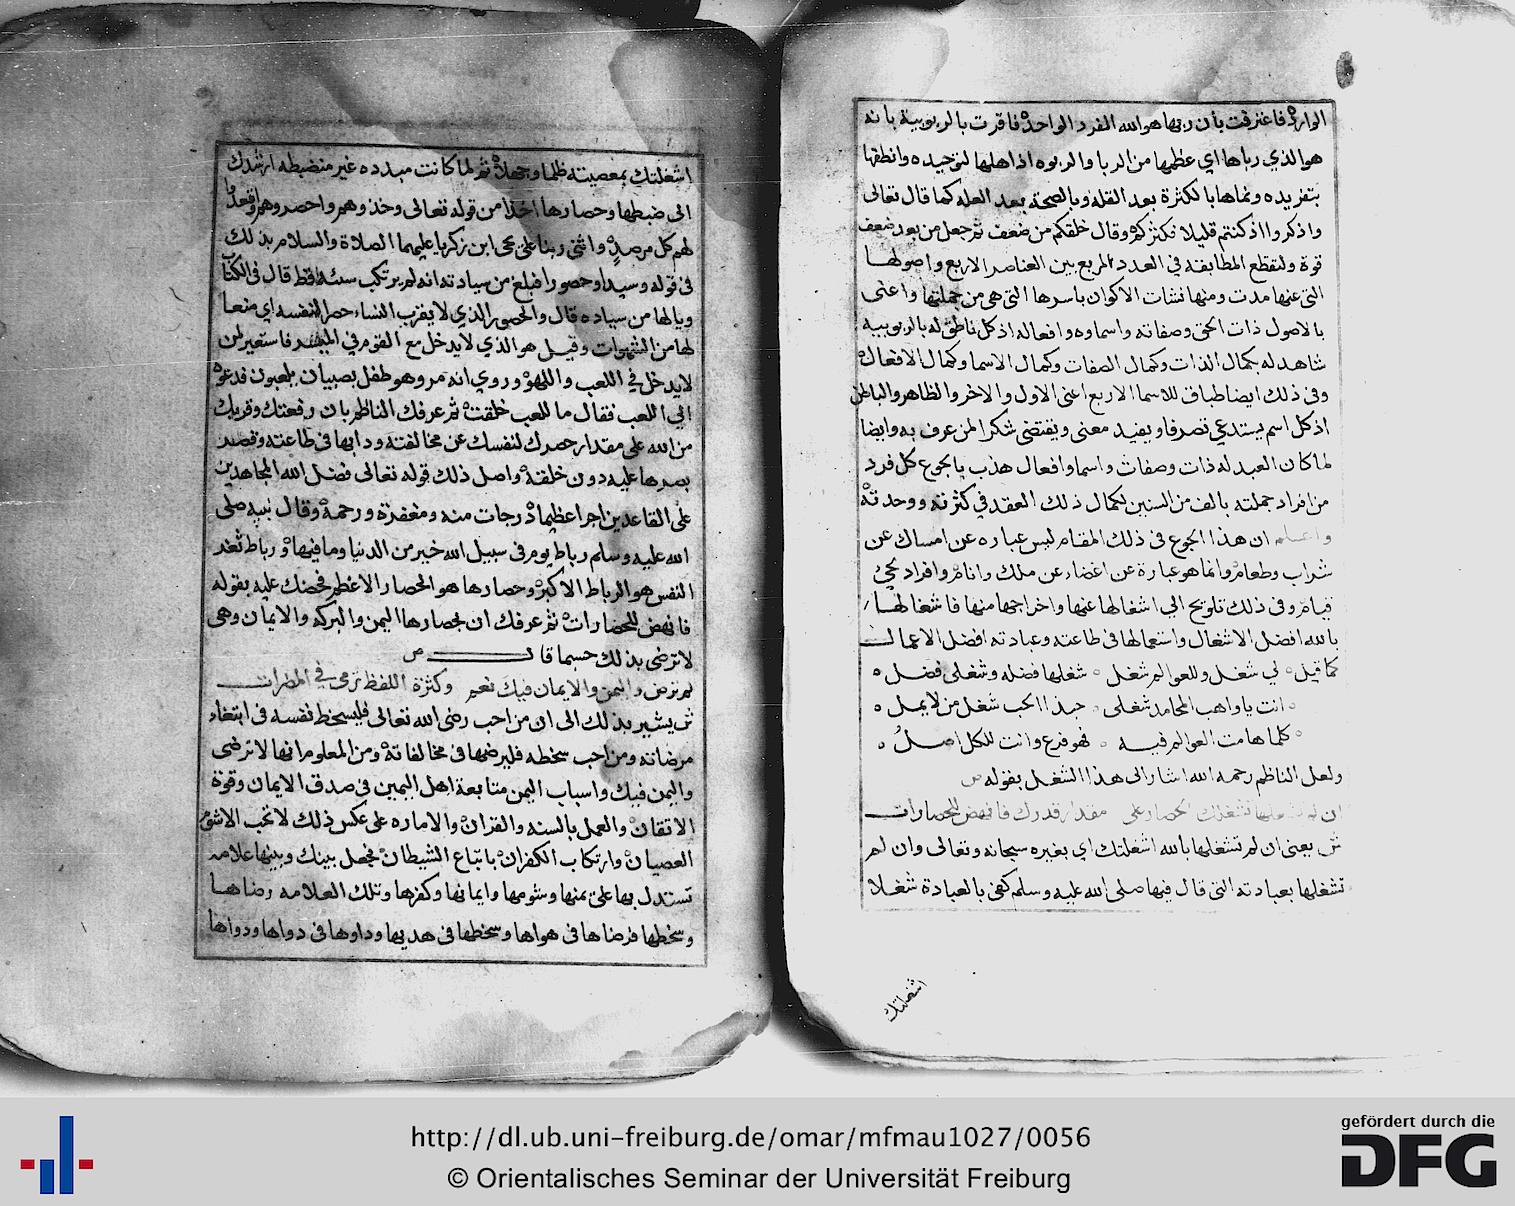 الوارد فاعترفت بأن ربها هو الله الفرد الواحد فاقرت بالربوبية بانه
هو الذي رباها اي عظمها من الربا والربوه اذ اهلها لتوحيده وانطقها
بتفريده ونماها بالكثرة بعد القله وبالصحة بعد العله كما قال تعالى
واذكروا اذ كنتم قليلا فكثركم وقال خلقكم من ضعف ثم جعل من بعد ضعف
قوة ولتقطع المطابقة في العدد المربع بين العناصر الاربع واصولها
التى عنها مدت ومنها نشات الاكوان باسرها التى هى من جملتها واعنى
بالاصول ذات الحق وصفاته واسماوه وافعاله اذ كل ناطق له بالربوبيه
شاهد له بكمال الذات وكمال الصفات وكمال الاسما وكمال الافعال
وفى ذلك ايضا طباق للاسما الاربع اعنى الاول والاخر والظاهر والباطن
اذ كل اسم يستدعي تصرفا ويفيد معنى ويقتضى شكرا لمن عرف به وايضا
لما كان العبد له ذات وصفات واسما وافعال هذب بالجوع كل فرد
من افراد جملته بالف من السنين لكمال ذلك العقد في كثرته ووحدته
واعلم ان هذا الجوع فى ذلك المقام ليس عباره عن امساك عن
شراب وطعام وانما هو عبارة عن اغضاء عن ملك وانام وافراد بحي
قيام وفى ذلك تلويح الي اشغالها عنها واخراجها منها فاشغالها
بالله افضل الاشغال واستعمالها فى طاعته وعبادته افضل الاعمال
كما قيل لي شغل وللعوالم شغل شغلها فضله وشغلى فضل
انت يا واهب المحامد شغلى حبذا الحب شغل من لا يمل
كلما هامت العوالم فيه فهو فرع وانت للكل اصل
ولعل الناظم رحمه الله اشار الى هذا الشغل بقوله ص
ان لم تشغلها تشغلك الحصار على مقدار قدرك فانهض للحصارات
ش يعنى ان لم تشغلها بالله اشغلتك اي بغيره سبحانه وتعالى وان لم
تشغلها بعبادته التى قال فيها صلى الله عليه وسلم كفى بالعبادة شغلا
اشغلتك
اشغلتك بمعصيته ظلما وجهلا ثم لما كانت مبدده غير منضبطه ارشدك
الى ضبطها وحصارها اخذا من قوله تعالى وخذوهم واحصروهم واقعدوا
لهم كل مرصد واثنى ربنا على يحى ابن زكريا عليهما الصلاة والسلام بذلك
فى قوله وسيدا وحصورا فبلغ من سيادته انه لم يرتكب سئة قط قال فى الكتاب
ويالها من سياده قال والحصور الذي لا يقرب النساء حصرا لنفسه اي منعا
لها من الشهوات وقيل هو الذي لا يدخل مع القوم في الميسر فاستعير لمن
لا يدخل في اللعب واللهو وروي انه مر وهو طفل بصبيان يلعبون فدعوه
الي اللعب فقال ما للعب خلقت ثم عرفك الناظم بان رفعتك وقربك
من الله على مقدار حصرك لنفسك عن مخالفته ودابها فى طاعته وقصد
بصرها عليه دون خلقه واصل ذلك قوله تعالى فضل الله المجاهدين
على القاعدين اجرا عظيما درجات منه ومغفرة ورحمة وقال نبيه صلى
الله عليه وسلم رباط يوم فى سبيل الله خير من الدنيا وما فيها و رباط ثغر
النفس هو الرباط الاكبر وحصارها هو الحصار الاعظم فحضك عليه بقوله
فانهض للحصارات ثم عرفك ان بحصارها اليمن والبركه والايمان وهى
لا ترضى بذلك حسبما قال ص
لم ترض واليمن والايمان فيك نعم وكثرة اللفظ ترمى في المطرات
ش يشير بذلك الى ان من احب رضى الله تعالى فليسخط نفسه فى ابتغاء
مرضاته ومن احب سخطه فليرضها فى مخالفاته ومن المعلوم انها لا ترضى
واليمن فيك واسباب اليمن متابعة اهل اليمين فى صدق الايمان وقوة
الاتقان والعمل بالسنه والقران والاماره على عكس ذلك لا تحب الا شوم
العصيان وارتكاب الكفران باتباع الشيطان فجعل بينك وبينها علامه
تستدل بها على يمنها وشومها وايمانها وكفرها وتلك العلامه رضاها
وسخطها فرضاها فى هواها وسخطها فى هديها وداوها فى دواها ودواها
http://dl.ub.uni-freiburg.de/omar/mfmau1027/0056
© Orientalisches Seminar der Universität Freiburg
gefördert durch die
DFG